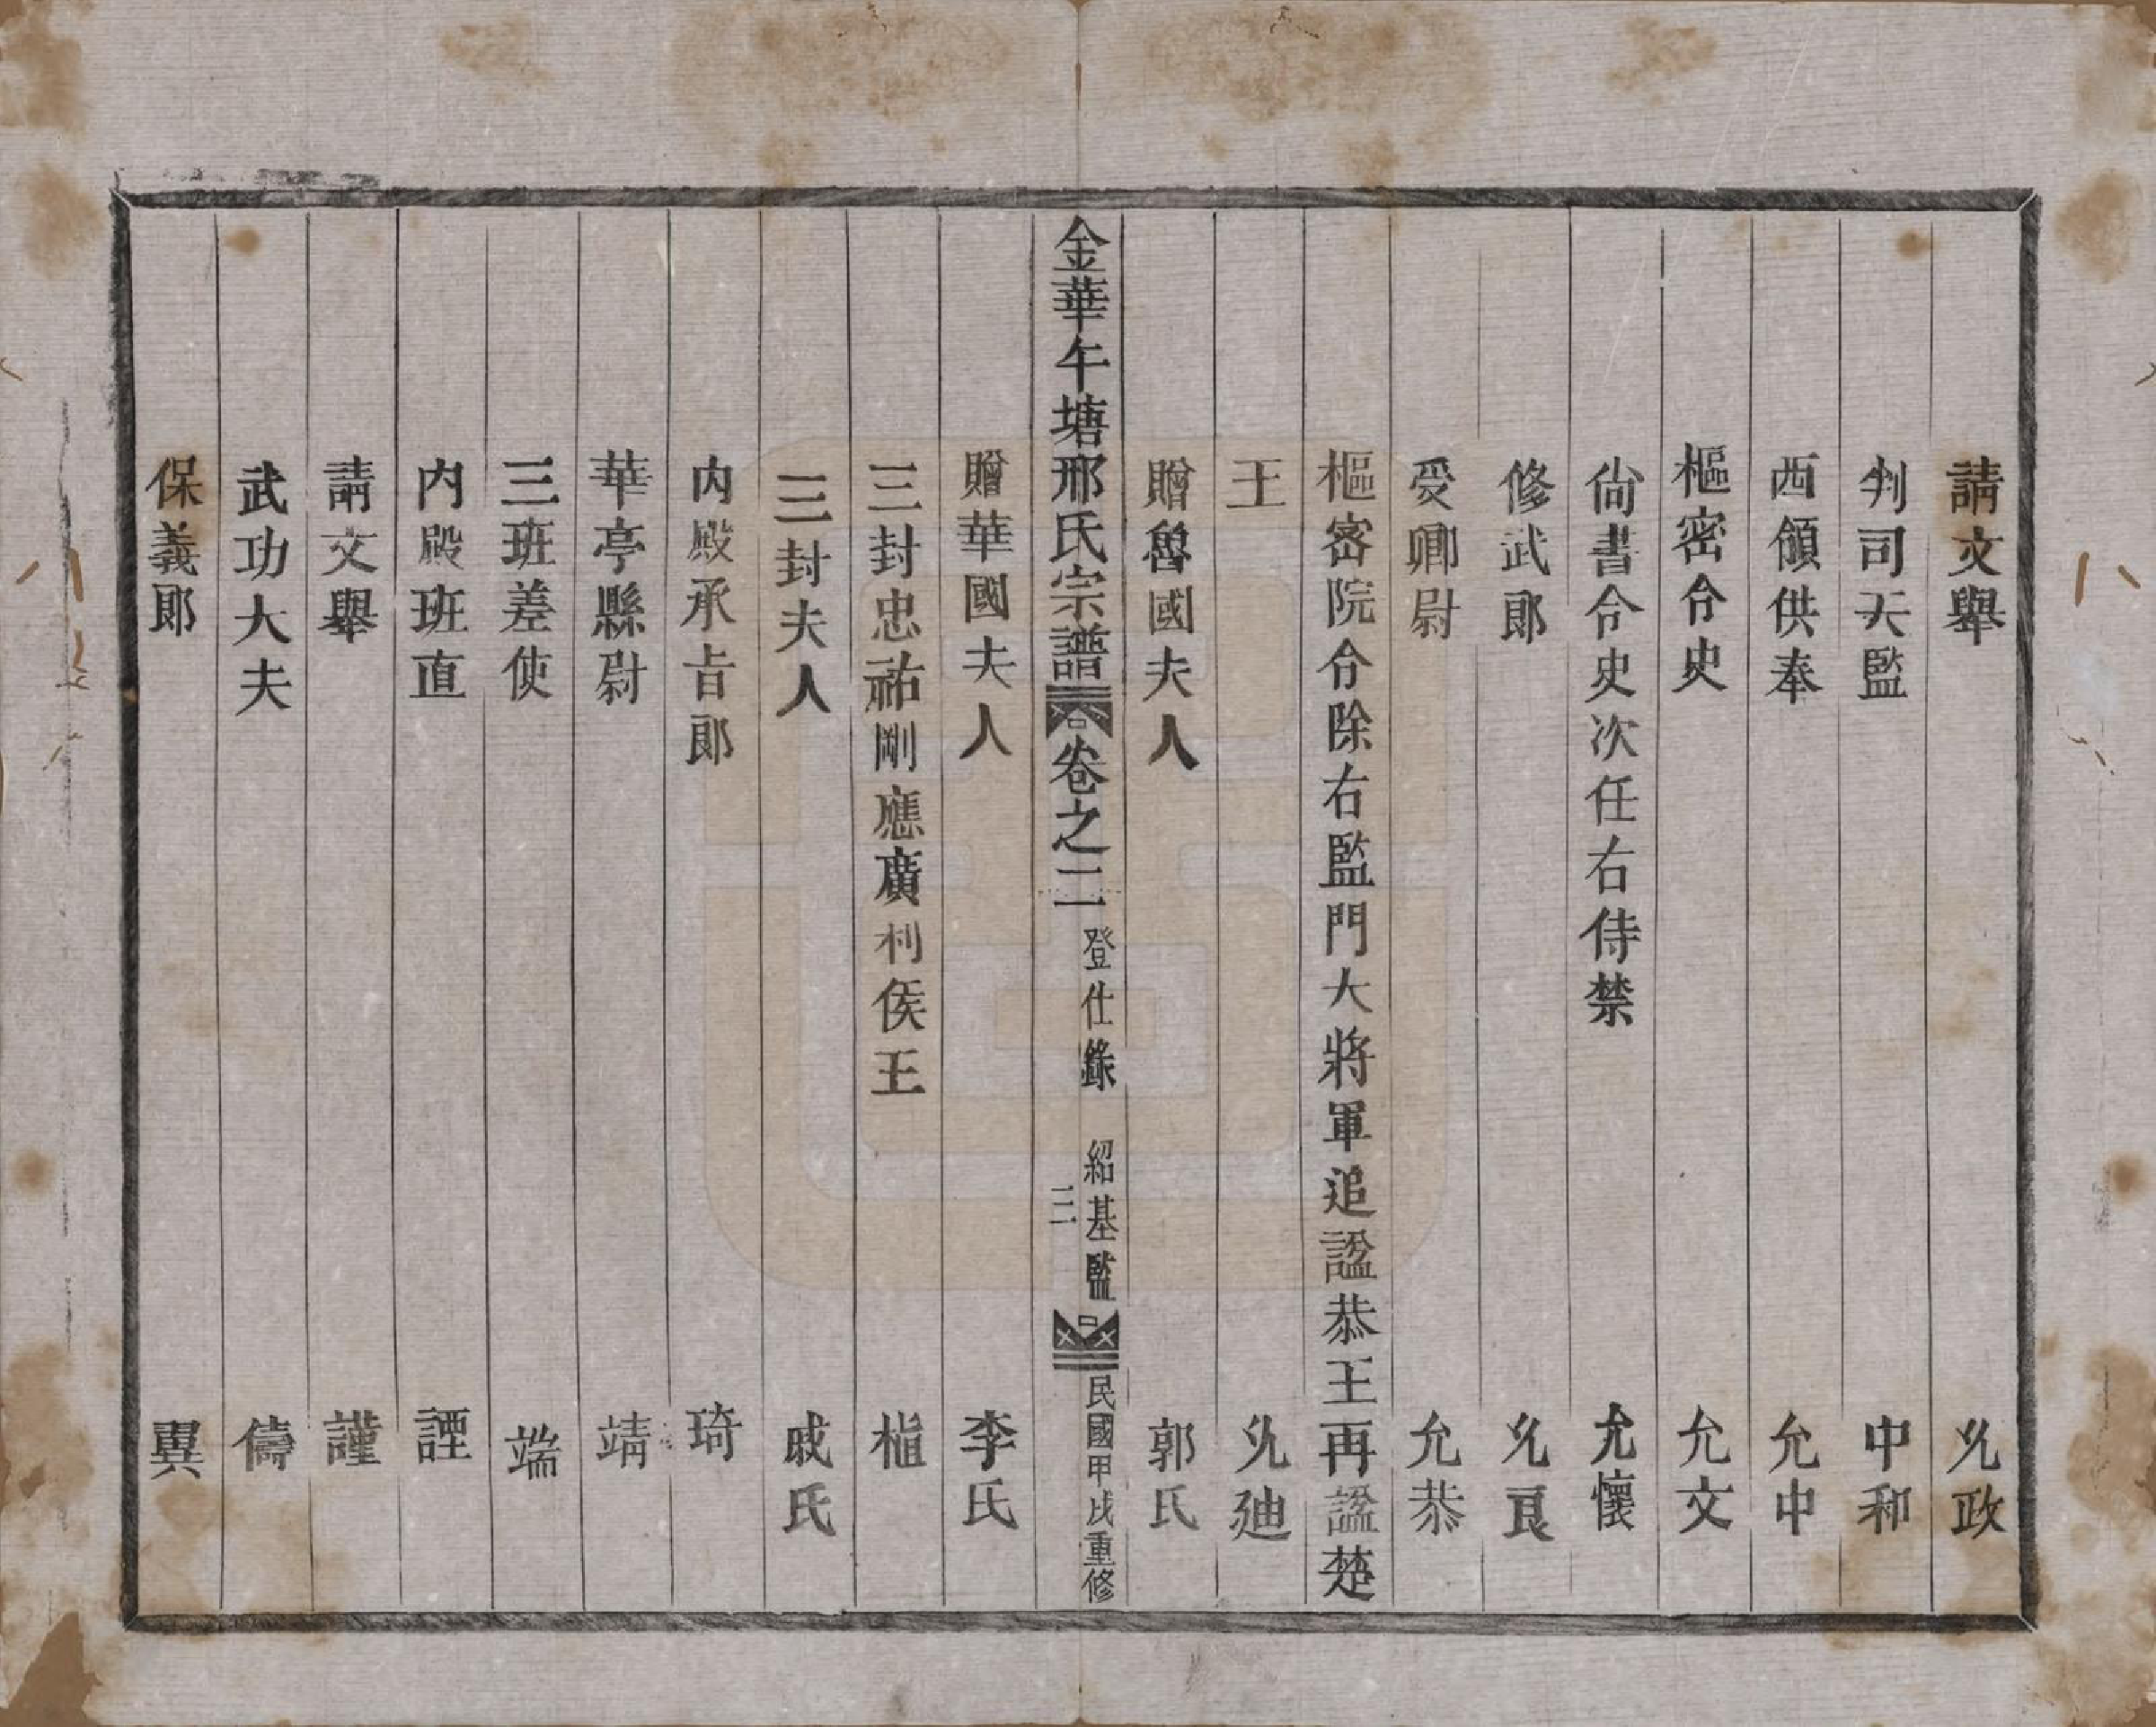 請文舉 允政
判司天監 中和
西頟供奉 允中
樞密令史 允文
尙書令史次任右侍禁 允懷
修武郎 允良
受卿尉 允恭
樞密院令除右監門大將軍追謚恭王再謚楚
王 允廸
贈魯國夫人 郭氏
金華午塘邢氏宗譜 卷之二 登仕錄 三 紹基監 民國甲戌重修
贈華國夫人 李氏
三封忠祐剛應廣利侯王 植
三封夫人 戚氏
内殿承㫖郎 琦
華亭縣尉 靖
三班差使 端
内殿班直 諲
請文舉 謹
武功大夫 儔
保義郎 異